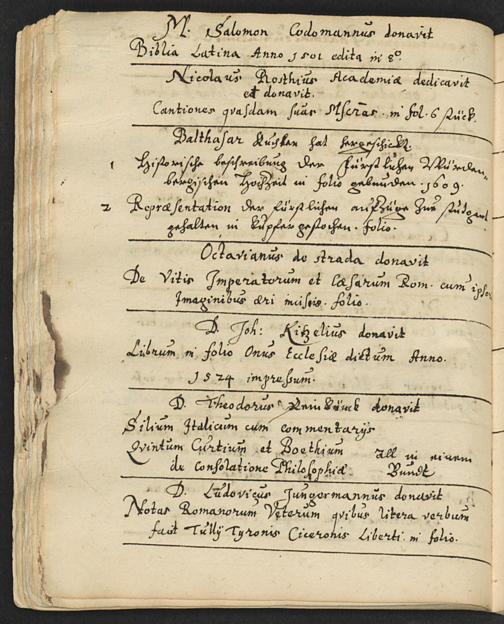 M. Salomon Codomannus donavit
Biblia Latina Anno 1501 edita in 8°.
Nicolaus Rosthius Academiæ dedicavit
et donavit.
Cantiones quasdam suas Mscras. in fol. 6 stück.
Balthasar Küchlen hat hergeschickt.
1 Historische beschreibung der Fürstlichen Würten-
bergischen Hochzeit in folio gebunden. 1609.
2 Repræsentation der fürstlichen auffzüge zur Stutgart
gehalten in kupfer gestochen. folio.
Octavianus de strada donavit
De Vitis Imperatorum et Cæsarum Rom. cum ipsor.
Imaginibus æri incisis. folio.
D. Joh: Kitzelius donavit
Librum in folio Onus Ecclesiæ dictum Anno.
1524 impressum.
D. Theodorus Reinkinck donavit
Silium Italicum cum commentarijs
Qvintum Curtium et Boethium all in einem
de Consolatione Philosophiæ Bundt
D. Ludovicus Jungermannus donavit
Notas Romanorum Veterum qvibus litera verbum
facit Tullÿ Tyronis Ciceronis Liberti. in folio.